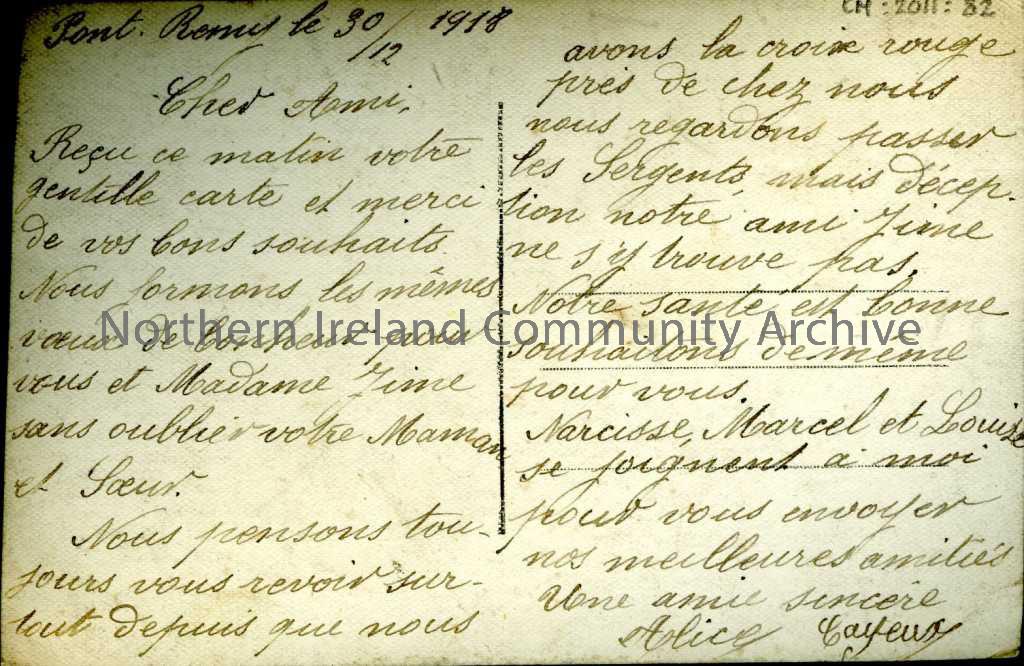 CM : 2011 : 82
Pont. Remy le 30/12 1918
Cher Ami,
Reçu ce matin votre
gentille carte et merci
de vos bons souhaits
Nous formons les mêmes
vœux de bonheur pour
vous et Madame Jime
sans oublier votre Maman
et Sœur.
Nous pensons tou-
jours vous revoir sur-
tout depuis que nous
avons la croix rouge
près de chez nous
nous regardons passer
les Sergents, mais décep-
tion notre ami Jime
ne s'y trouve pas.
Notre santé est bonne
souhaitons de même
pour vous.
Narcisse, Marcel et Louise
se joignent à moi
pour vous envoyer
nos meilleures amitiés
Une amie sincère
Alice Cayeux
Northern Ireland Community Archive